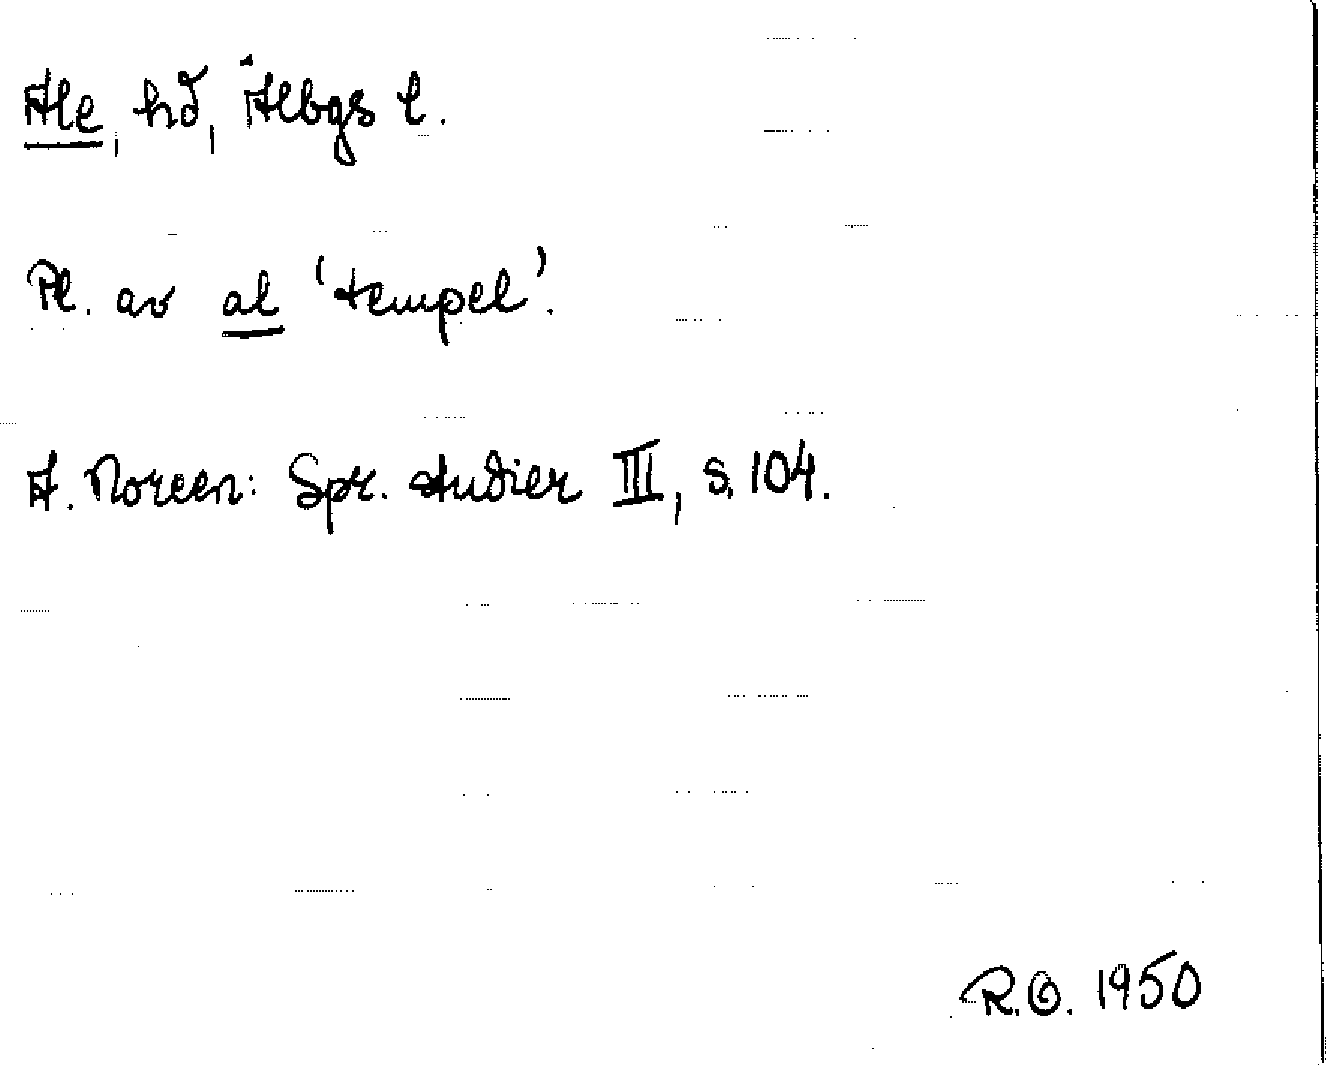 Ale, hd, Älvbgs l.
Pl. av al 'tempel'.
A. Noreen: Spr. studier III, s. 104.
R.O. 1950